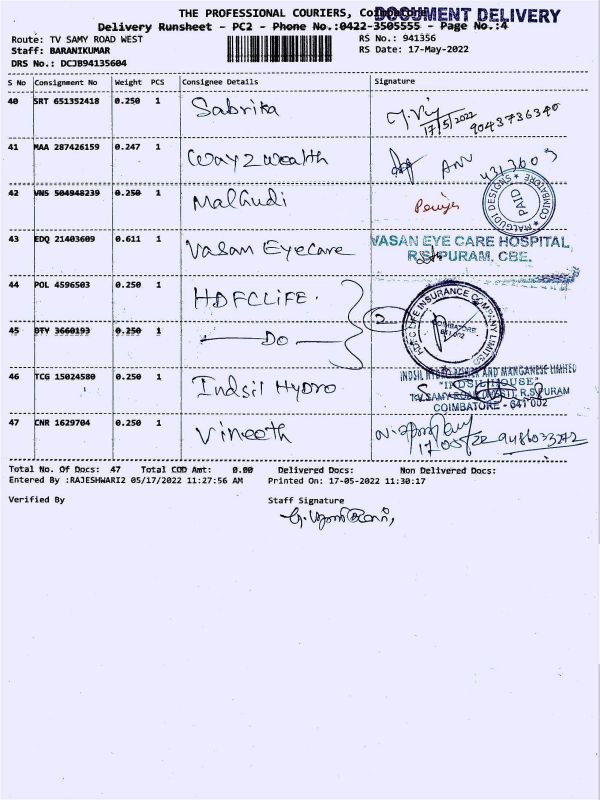 THE PROFESSIONAL COURIERS, Coimbatore
DOCUMENT DELIVERY
Delivery Runsheet - PC2 - Phone No.:0422-3505555 - Page No.:4
Route: TV SAMY ROAD WEST RS No.: 941356
Staff: BARANIKUMAR RS Date: 17-May-2022
DRS No.: DCJB94135604
S No Consignment No Weight PCS Consignee Details Signature
40 SRT 651352418 0.250 1 Sabrika 17/5/2022 9043736340
41 MAA 287426159 0.247 1 Way2wealth
42 VNS 504948239 0.250 1 Malgudi
MALGUDI DESIGNS * COIMBATORE * PAID
43 EDQ 21403609 0.611 1 Vasan Eyecare
VASAN EYE CARE HOSPITAL,
R.S. PURAM, CBE.
44 POL 4596503 0.250 1 HDFCLIFE.
2
HDFC LIFE INSURANCE COMPANY LIMITED
COIMBATORE
641 002
45 DTY 3660193 0.250 1 Do
46 TCG 15024580 0.250 1 Indsil Hydro
INDSIL HYDRO POWER AND MANGANESE LIMITED
"INDSIL HOUSE"
T.V. SAMY ROAD (WEST), R.S. PURAM
COIMBATORE - 641 002
47 CNR 1629704 0.250 1 Vineeth
Total No. Of Docs: 47 Total COD Amt: 0.00 Delivered Docs: Non Delivered Docs:
Entered By :RAJESHWARI2 05/17/2022 11:27:56 AM Printed On: 17-05-2022 11:30:17
Verified By Staff Signature